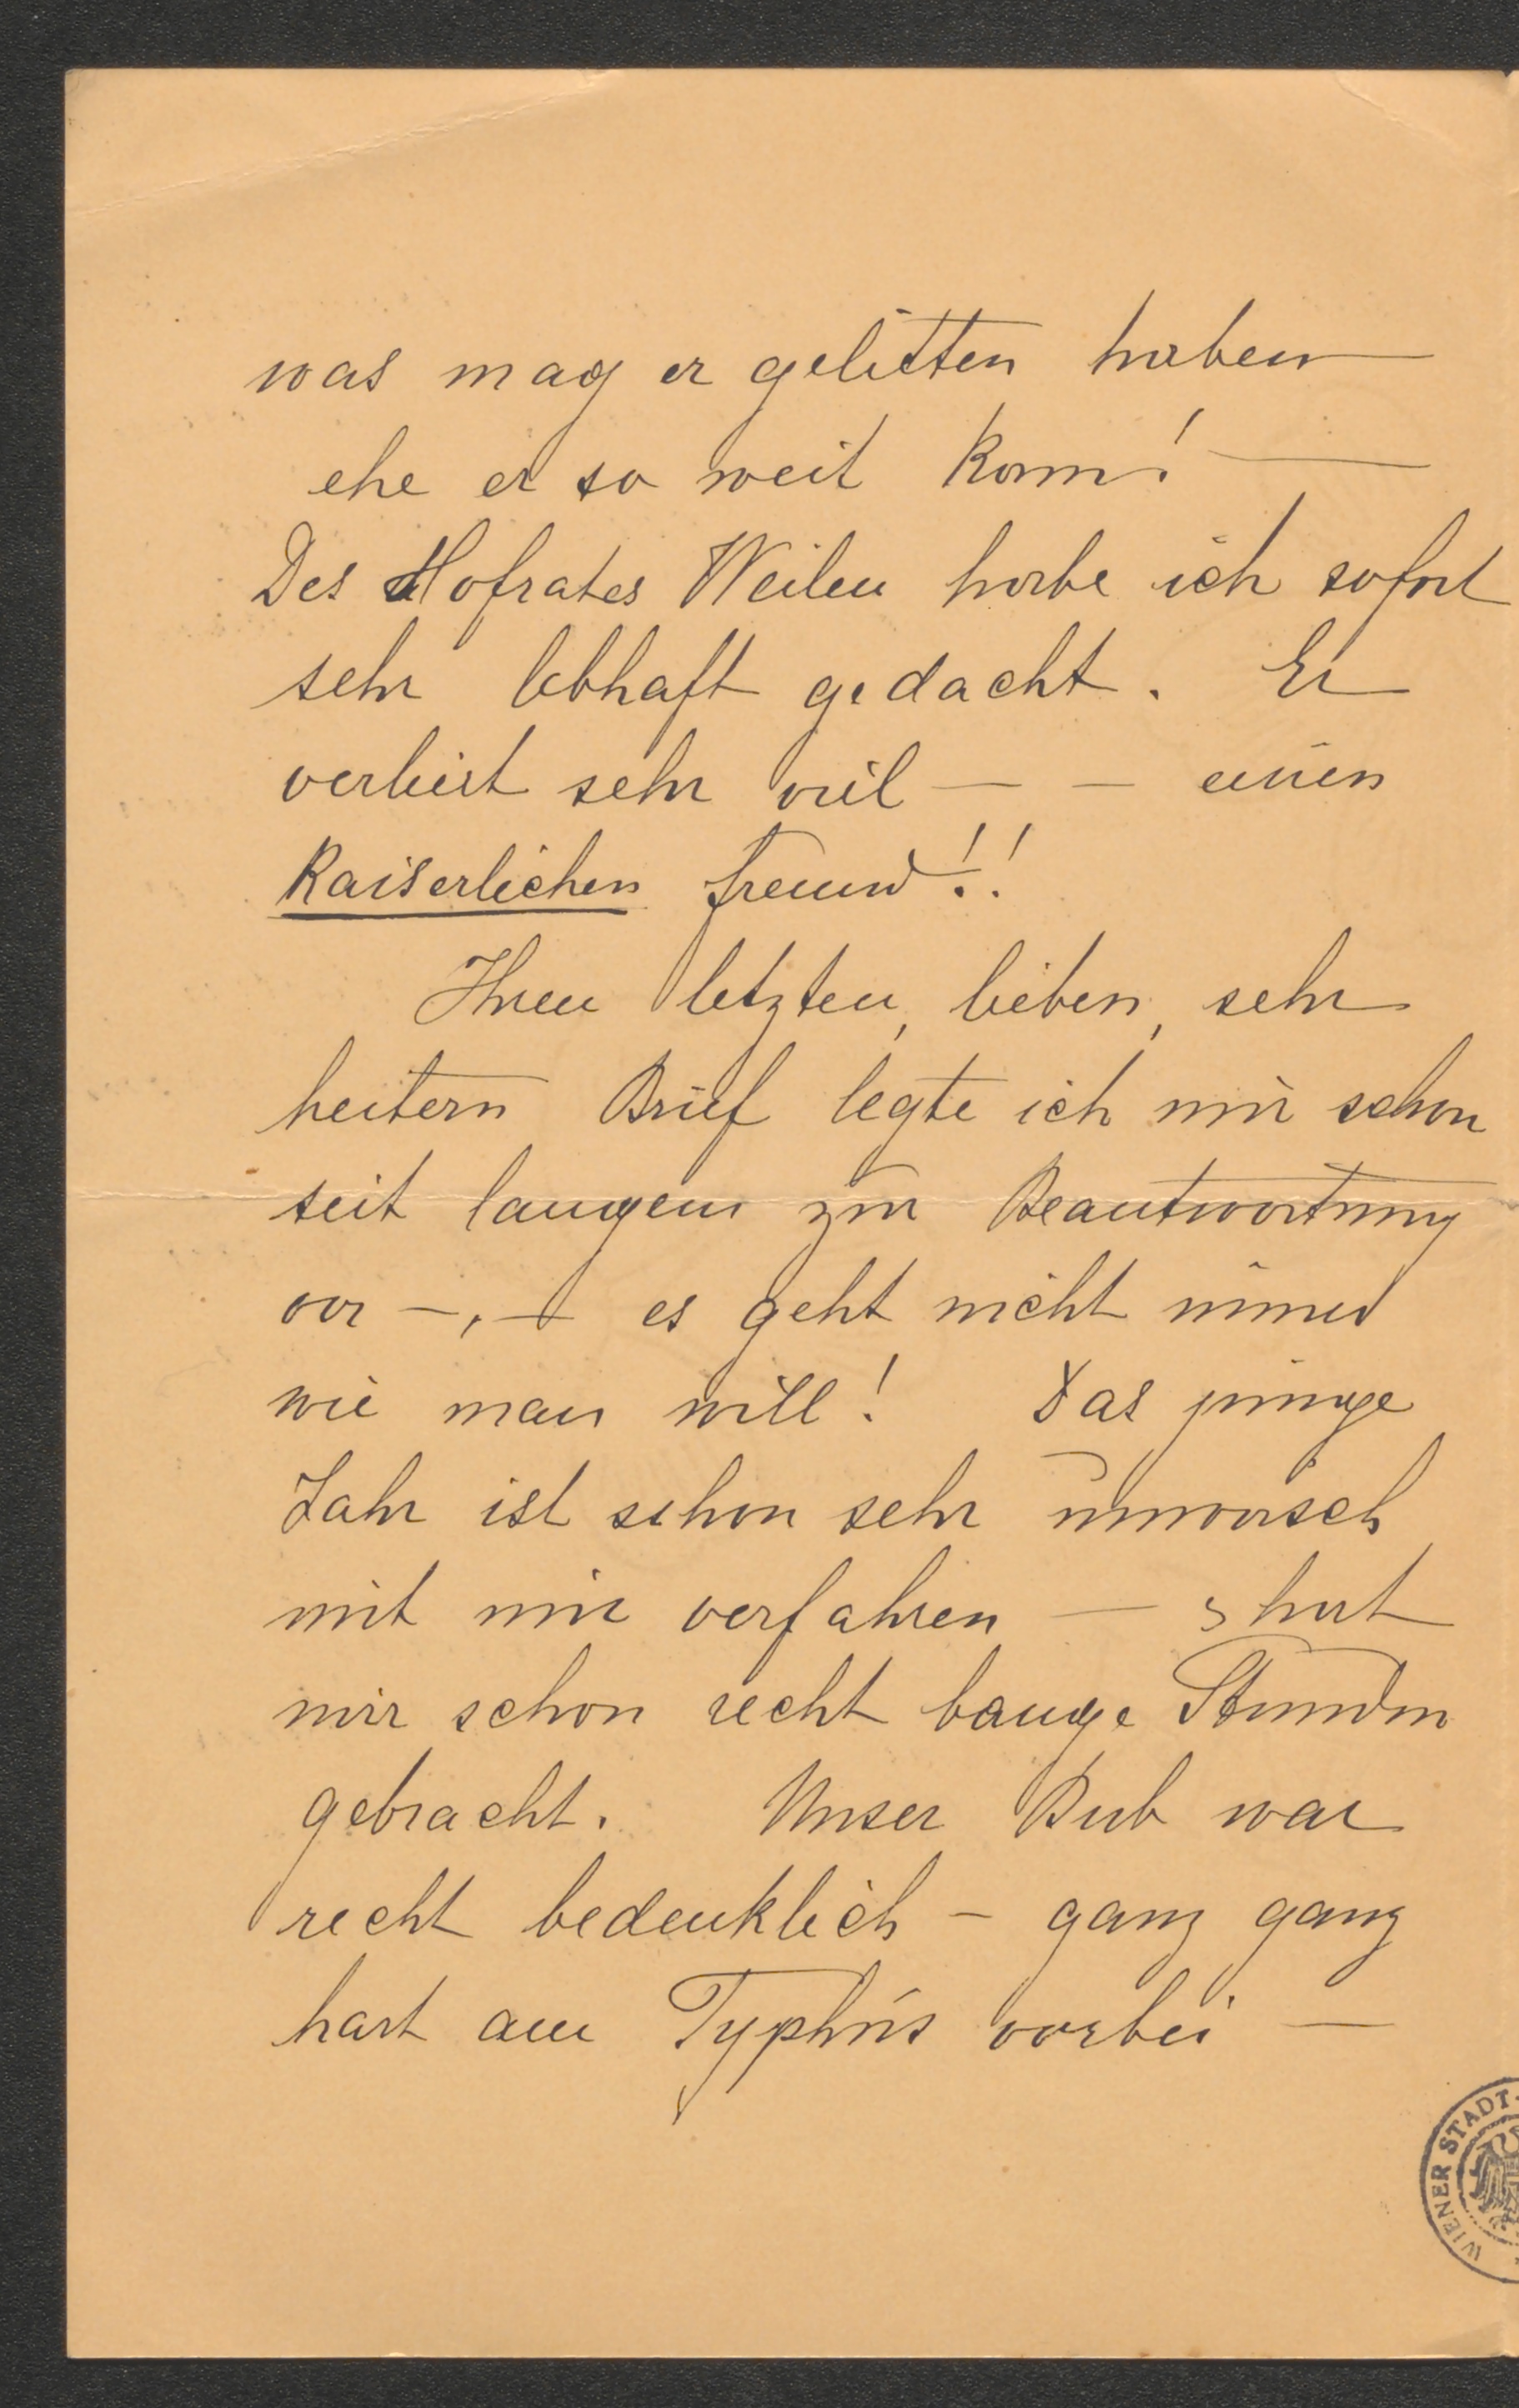 was mag er gelitten haben
ehe er so weit kam! —
Des Hofrates Weilen habe ich sofort
sehr lebhaft gedacht. Er
verliert sehr viel — — einen
Kaiserlichen Freund!!
Ihren letzten, lieben, sehr
heitern Brief legte ich mir schon
seit langem zur Beantwortung
vor —, — es geht nicht immer
wie man will! Das junge
Jahr ist schon sehr unwirsch
mit mir verfahren — 's hat
mir schon recht bange Stunden
gebracht. Unser Bub war
recht bedenklich — ganz ganz
hart am Typhus vorbei —
WIENER STADT-